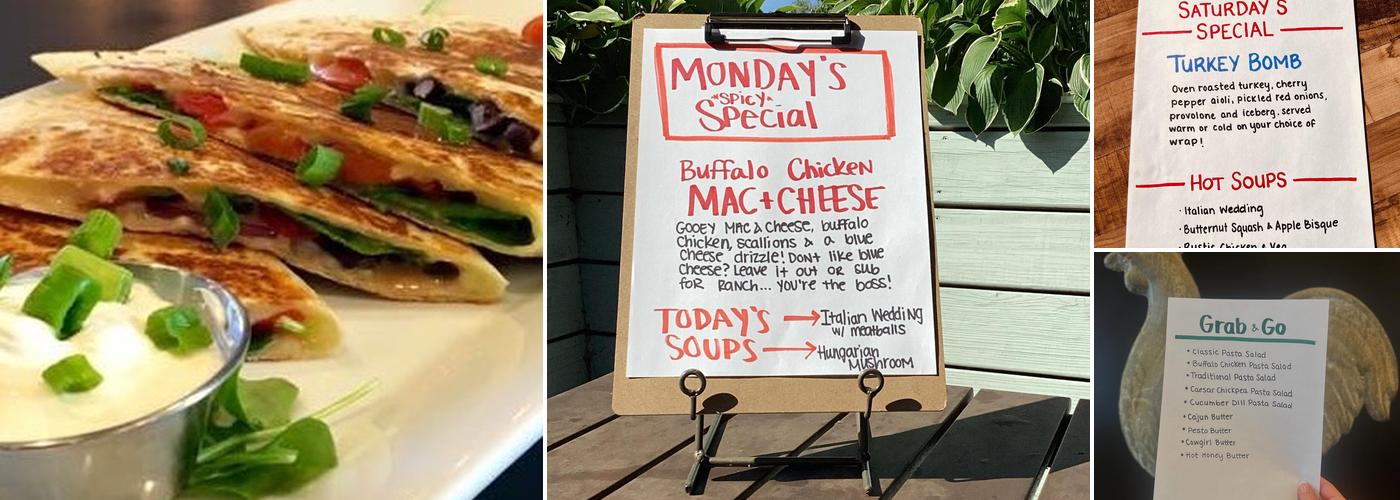 MONDAY'S
*SPICY*
Special
Buffalo Chicken
MAC+CHEESE
GOOEY MAC & Cheese, buffalo
Chicken, scallions & a blue
Cheese drizzle! Don't like blue
Cheese? Leave it out or sub
for RANCH... you're the boss!
TODAY'S → Italian Wedding
w/ meatballs
SOUPS → Hungarian
Mushroom
SATURDAY'S
SPECIAL
TURKEY BOMB
Oven roasted turkey, cherry
pepper aioli, pickled red onions,
provolone and iceberg. served
warm or cold on your choice of
wrap!
HOT SOUPS
· Italian Wedding
· Butternut Squash & Apple Bisque
· Rustic Chicken & Veg
Grab & Go
• Classic Pasta Salad
• Buffalo Chicken Pasta Salad
• Traditional Pasta Salad
• Caesar Chickpea Pasta Salad
• Cucumber Dill Pasta Salad
• Cajun Butter
• Pesto Butter
• Cowgirl Butter
• Hot Honey Butter